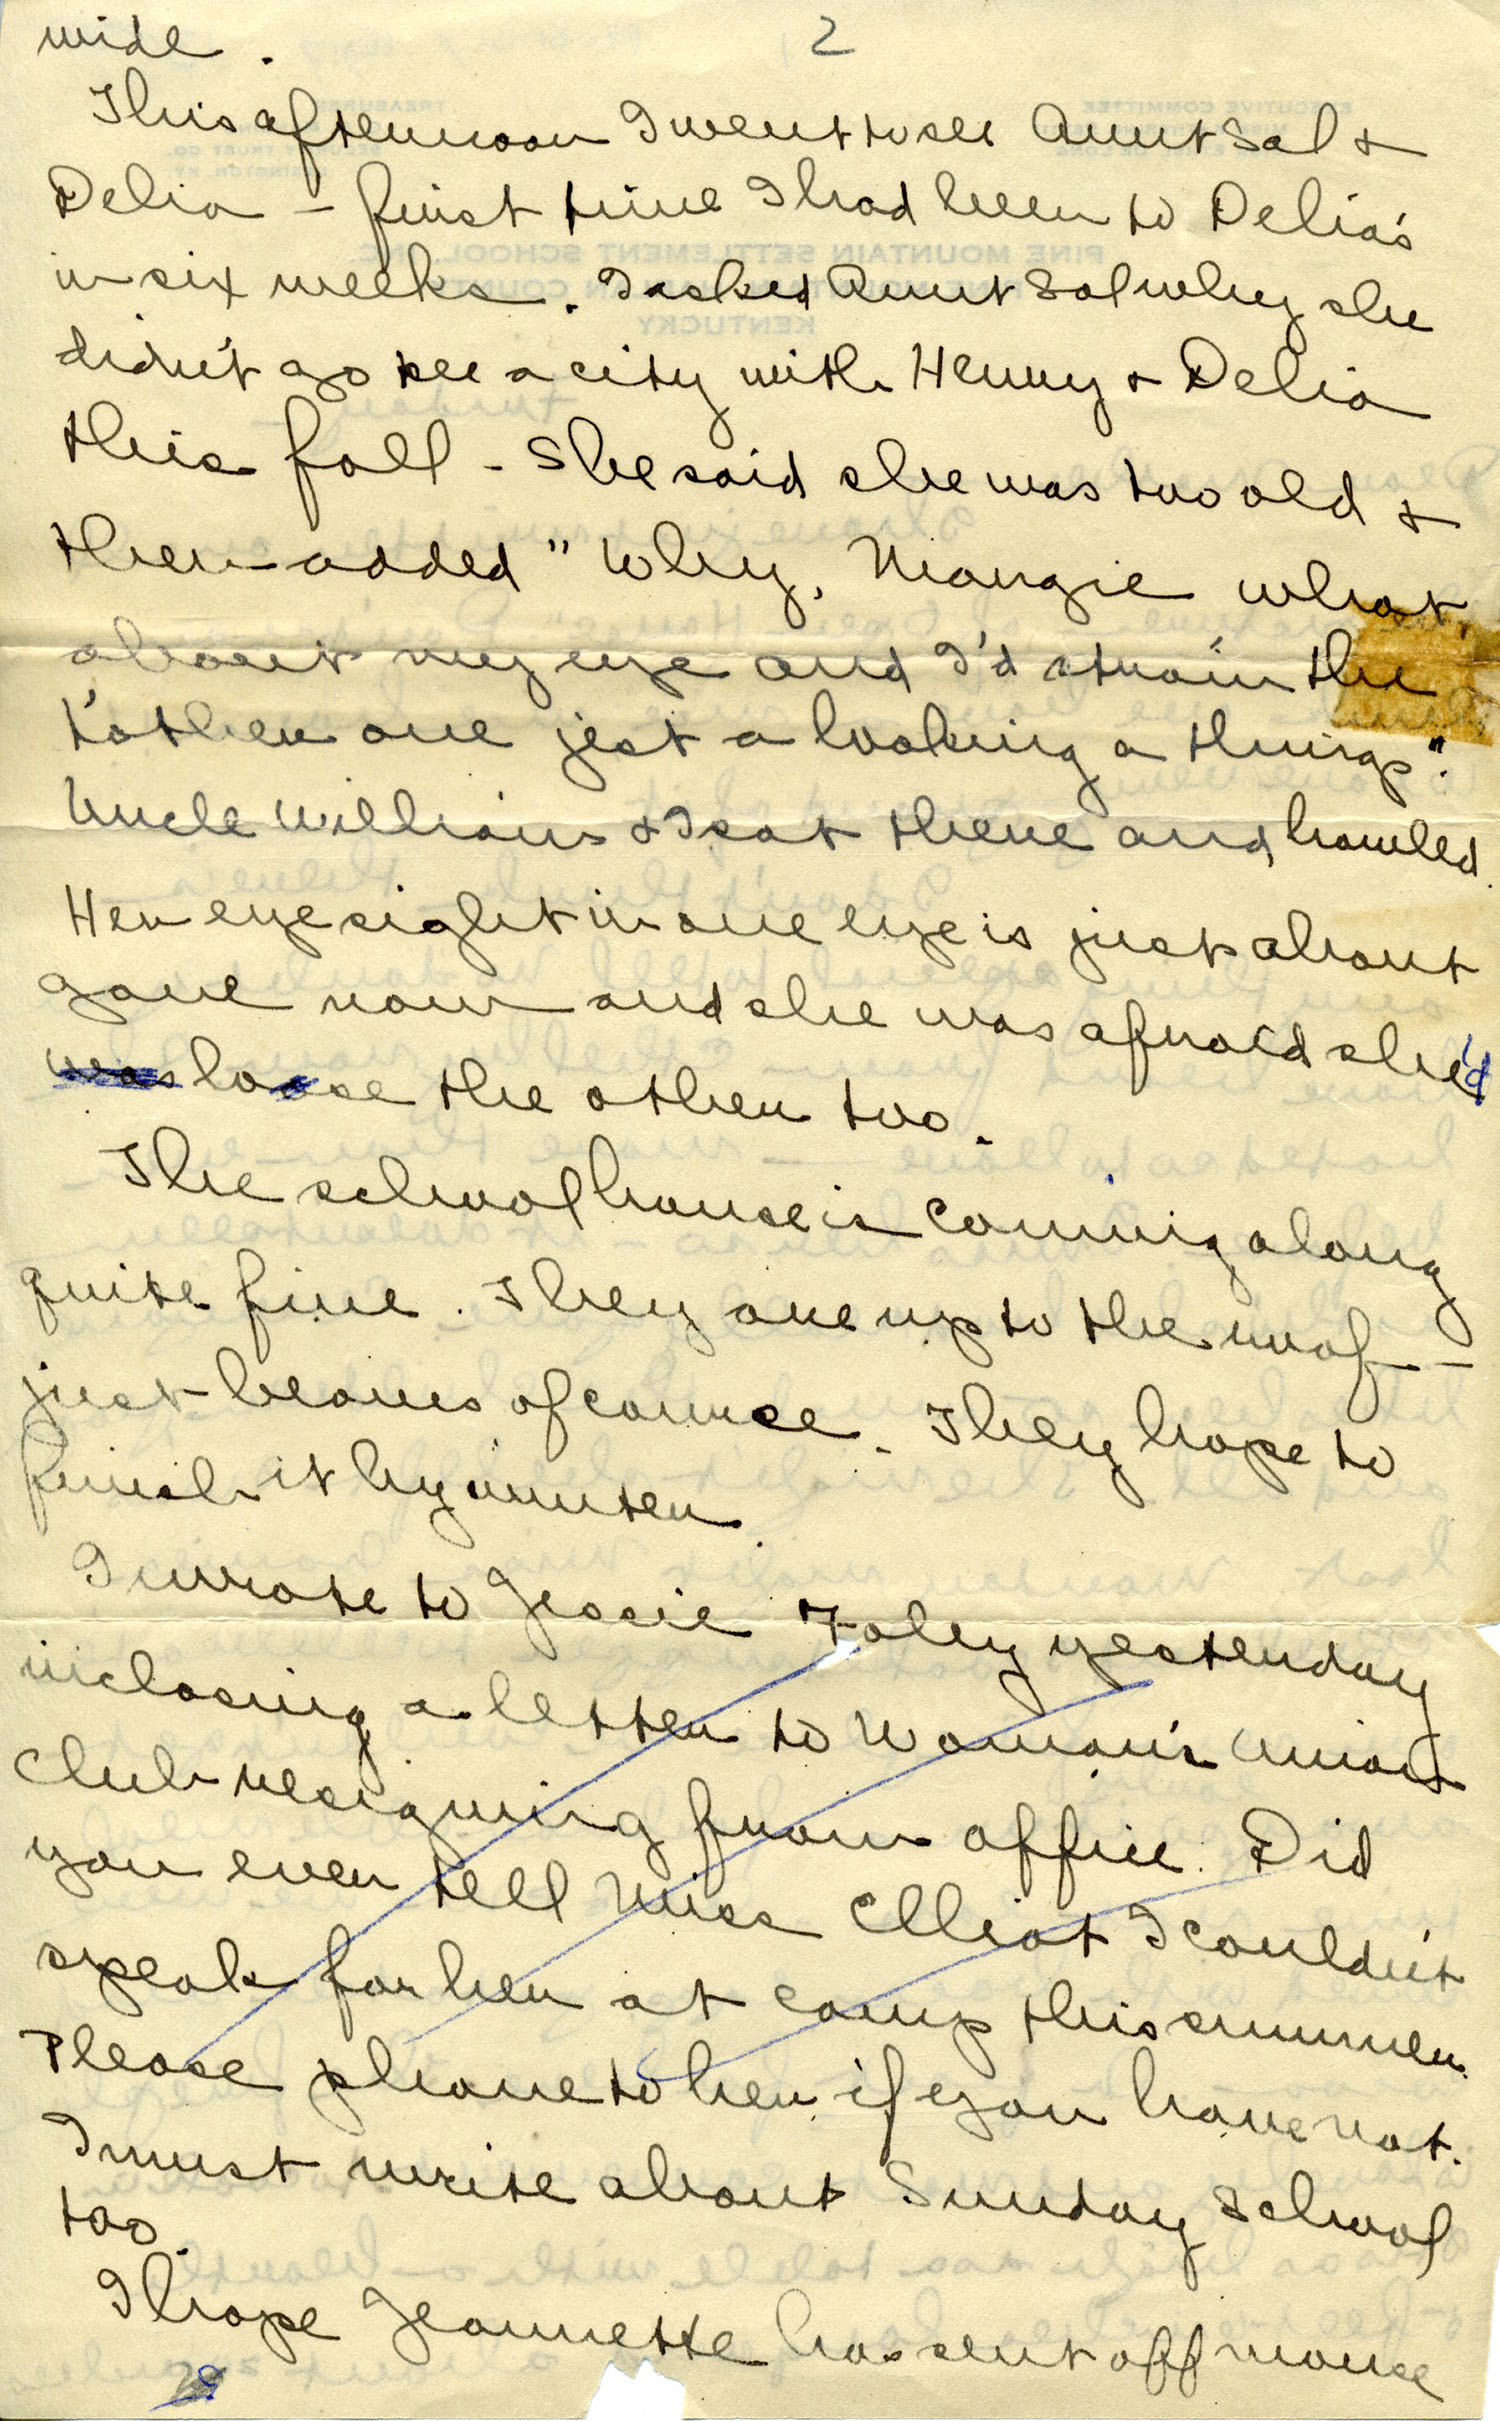 2
wide.
This afternoon I went to see Aunt Sal &
Delia - first time I had been to Delia's
in six weeks. I asked Aunt Sal why she
didn't go see a city with Henry & Delia
this fall - She said she was too old &
then added "Why, Margie what
about my eye and I'd strain the
t'other one jest a looking a things".
Uncle William & I sat there and howled.
Her eyesight in one eye is just about
gone now and she was afraid she'd
was loose the other too.
The schoolhouse is coming along
quite fine. They are up to the roof -
just beams of course. They hope to
finish it by winter.
I wrote to Jessie Foley yesterday
inclosing a letter to Woman's Union
Club resigning from office. Did
you ever tell Miss Elliot I couldn't
speak for her at camp this summer.
Please phone to her if you have not.
I must write about Sunday School
too.
I hope Jeannette has sent off more
PINE MOUNTAIN SETTLEMENT SCHOOL, INC.
KENTUCKY
EXECUTIVE COMMITTEE
TREASURER